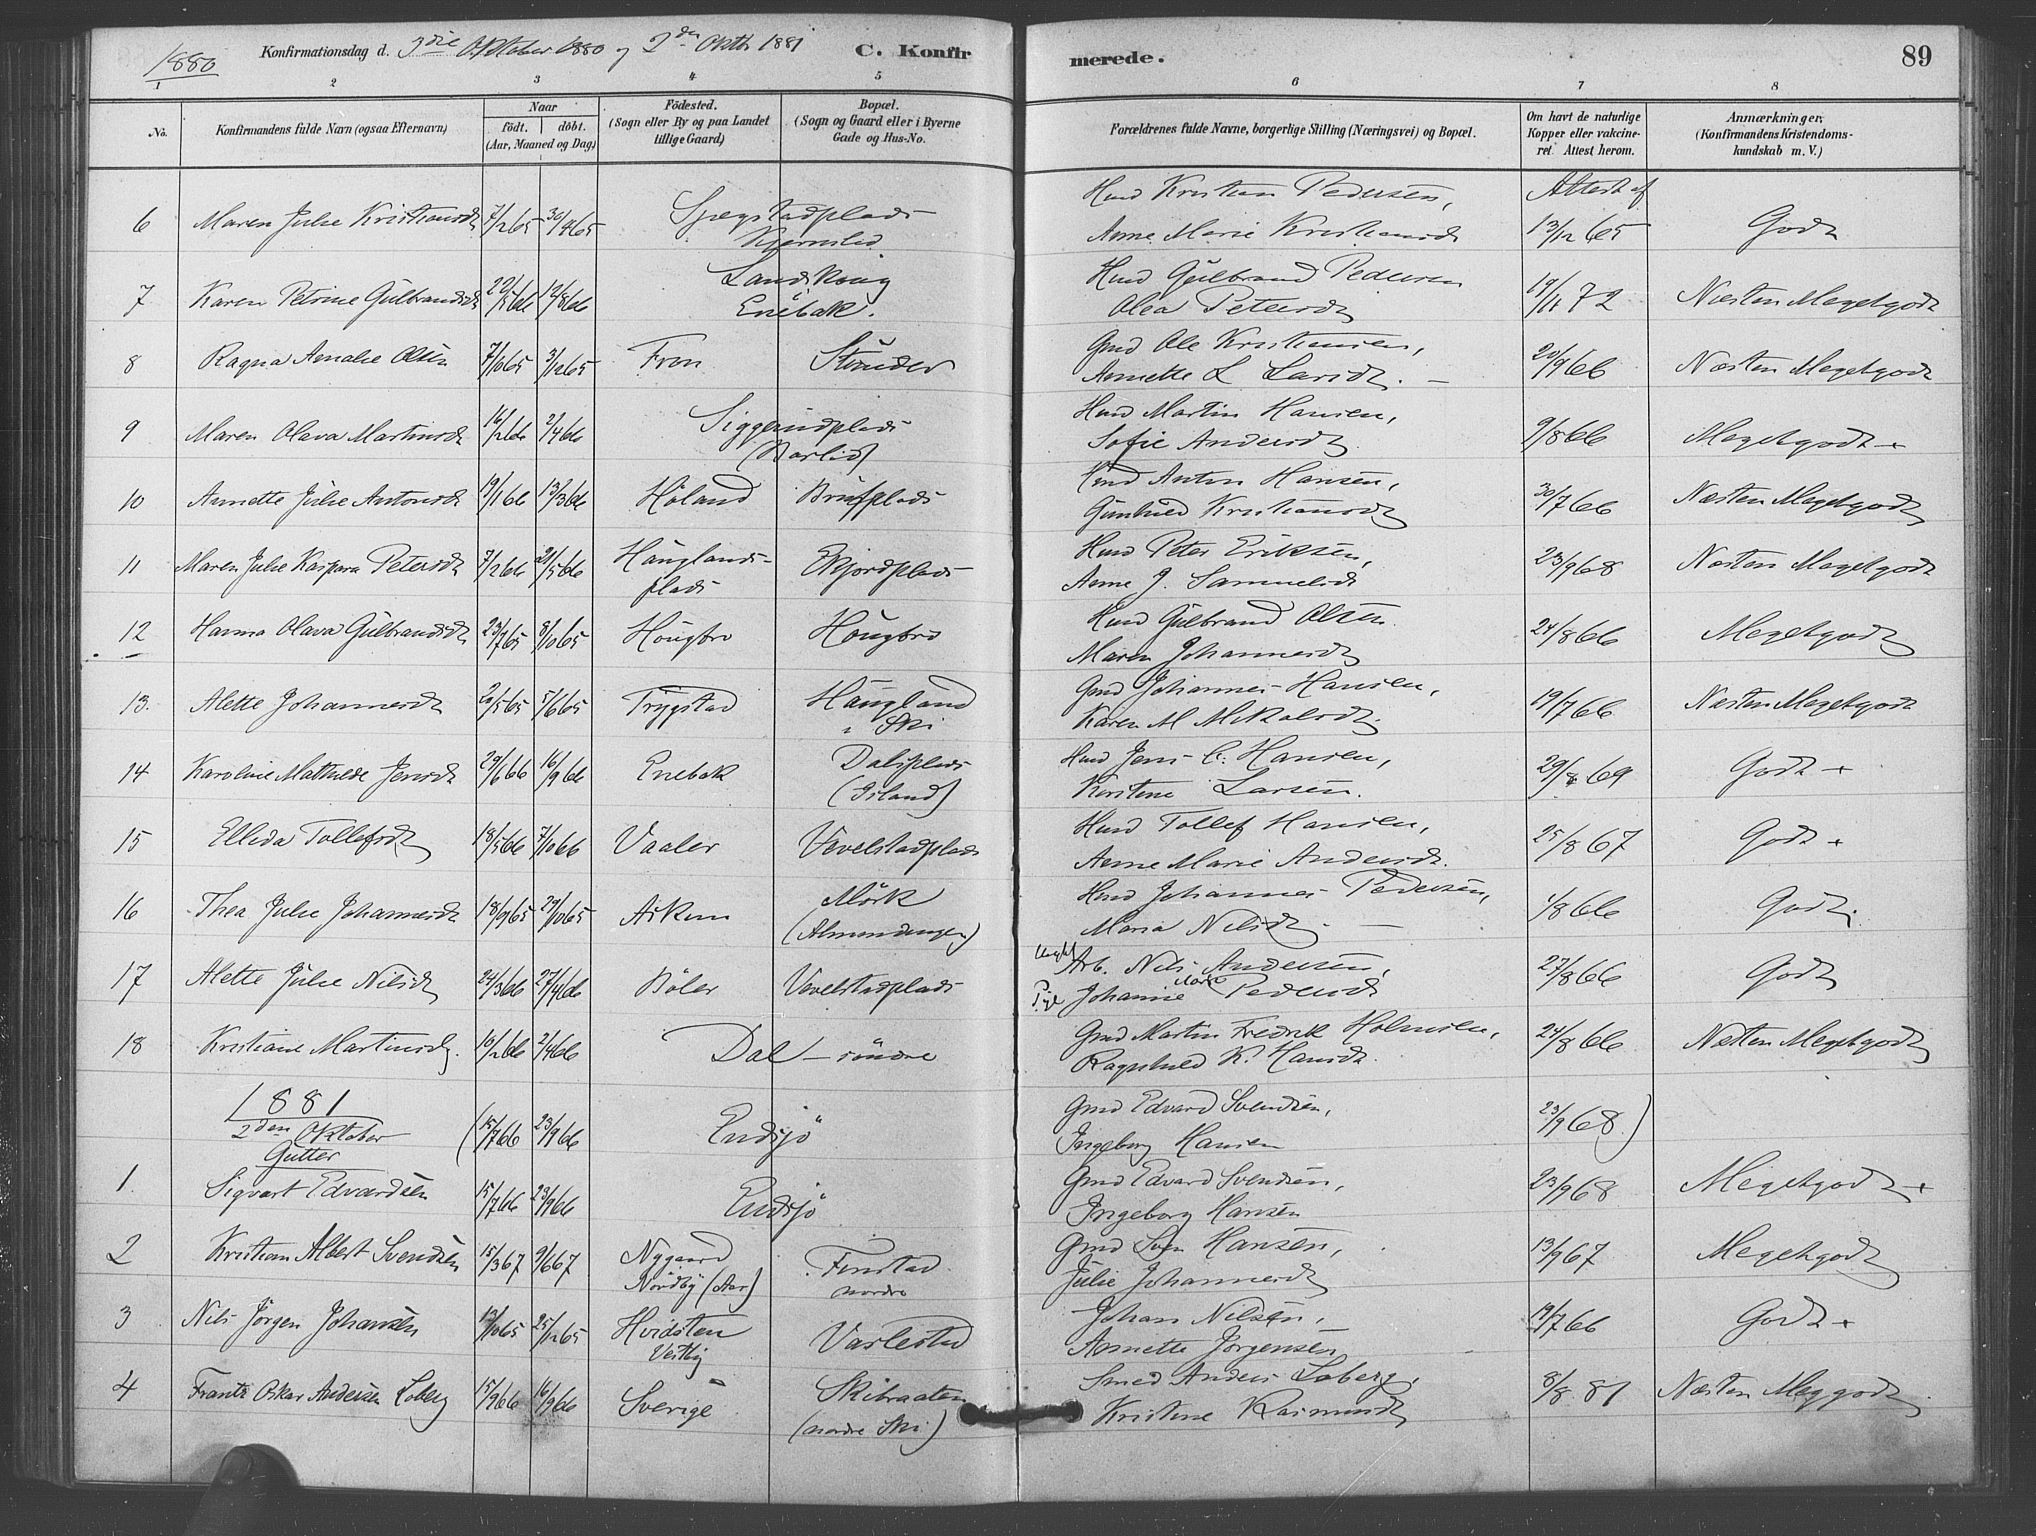 1880 Konfirmationsdag d. 3die Oktober 1880 og 2den Oktbr 1881 C. Konfirmerede. 89
1 2 3 4 5 6 7 8
No. Konfirmandens fulde Navn (ogsaa Efternavn) Naar födt. döbt. (Aar, Maaned og Dag) Födested. (Sogn eller By og paa Landet tillige Gaard) Bopæl. (Sogn og Gaard eller i Byerne Gade og Hus-No. Forældrenes fulde Navne, borgerlige Stilling (Næringsvei) og Bopæl. Om havt de naturlige Kopper eller vakcineret. Attest herom. Anmærkninger. (Konfirmandens Kristendomskundskab m. V.)
6 Maren Julie Kristiansdt 7/2 65 30/4 65 Sjegstadplads Kjernslid Hmd Kristian Pedersen, Anne Marie Kristiansdt Attest af 13/12 65 Godt
7 Karen Petrine Gulbrandsdt 22/5 66 12/8 66 Landskoug Enebak. Hmd Gulbrand Pedersen Olea Petersdt 19/11 72 Næsten Megetgodt
8 Ragna Amalie Olsen 7/10 65 3/12 65 Fron Stunder Gmd Ole Kristiansen, Annette L Larsdt. 20/9 66 Næsten Megetgodt
9 Maren Olava Martinsdt 16/2 66 2/4 66 Siggerudplads (Barlid) Hmd Martin Hansen, Sofie Andersdt 9/8 66 Megetgodt +
10 Annette Julie Antonsdt 19/1 66 13/3 66 Høland Brufplads Hmd Anton Hansen, Gunhild Kristiansdt 30/7 66 Næsten Megetgodt
11 Maren Julie Kaspara Petersdt 7/2 66 21/5 66 Hauglandsplads Ekjordplads Hmd Peter Eriksen, Anne J. Sammelsdt 23/9 68 Næsten Megetgodt
12 Hanna Olava Gulbrandsdt 23/7 65 8/10 65 Hougbro Hougbro Hmd Gulbrand Olsen Maren Johannesdt 24/8 66 Megetgodt
13. Alette Johannesdt 20/5 65 5/6 65 Trygstad Haugland i Ski Gmd Johannes Hansen, Karen M Mikalsdt. 19/7 66 Næsten Megetgodt
14 Karoline Mathilde Jensdt 29/6 66 16/9 66 Enebak Dalsplads (Island) Hmd Jens C. Hansen, Kirstine Larsen. 29/8 69 Godt +
15 Elleda Tollefsdt 18/5 66 7/10 66 Vaaler Vevelstadplads Hmd Tollef Hansen, Anne Marie Andersdt. 25/8 67 Godt +
16 Thea Julie Johannesdt 18/9 65 29/10 65 Askim Mörk (Almendingen) Hmd Johannes Pedersen, Maria Nilsdt. 1/8 66 Godt.
17 Alette Julie Nilsdt 24/3 66 27/4 66 Böler Vevelstadplads Ungkl Arb. Nils Andersen, Pige Johanne Marie Pedersdt 27/8 66 Godt
18 Kristiane Martinsdt. 16/2 66 2/4 66 Dal söndre Gmd Martin Fredrik Holmsen, Ragnhild K. Hansdt. 24/8 66 Næsten Megetgodt
1881 2den Oktober Gutter (15/7 66 23/9 66 Endsjö Gmd Edvard Svendsen, Ingeborg Hansen 23/9 68)
1. Sigvart Edvardsen 15/7 66 23/9 66 Endsjö Gmd Edvard Svendsen, Ingeborg Hansen 23/9 68 Megetgodt +
2 Kristian Albert Svendsen 15/3 67 9/6 67 Nygaard Nordby (Aas) Finstad nordre Gmd Sven Hansen, Julie Johannesdt 13/9 67 Megetgodt
3 Nils Jörgen Johansen 13/10 65 25/12 65 Hvidsten Vestby Vaslestad Johan Nilsen, Annette Jörgensen 19/7 66 Godt +
4 Frantz Oskar Andersen Loberg 15/9 66 16/9 66 Sverige Skibraaten (nordre Ski) Smed Anders Loberg, Kristine Rasmusdt 8/8 81 Næsten Meggodt